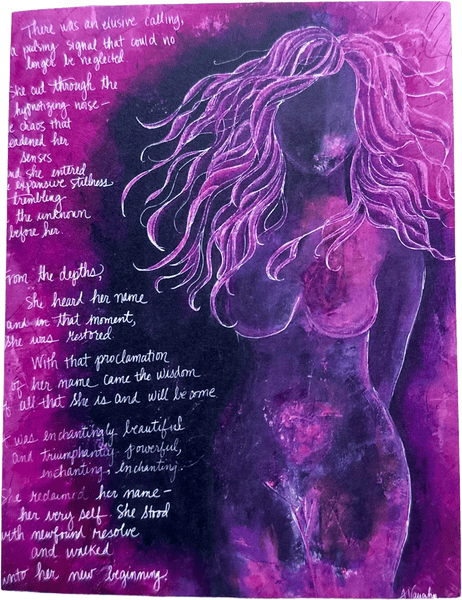 There was an elusive calling,
a pulsing signal that could no
longer be neglected
She cut through the
hypnotizing noise-
chaos that
deadened her
senses
and she entered
expansive stillness
trembling
the unknown
before her.
From the depths,
She heard her name
and in that moment,
she was restored.
With that proclamation
of her name came the wisdom
of all that she is and will be some
was enchantingly beautiful
and triumphantly powerful,
enchanting, enchanting...
She reclaimed her name-
her very self. She stood
with newfound resolve
and walked
into her new beginning.
A Vaughn